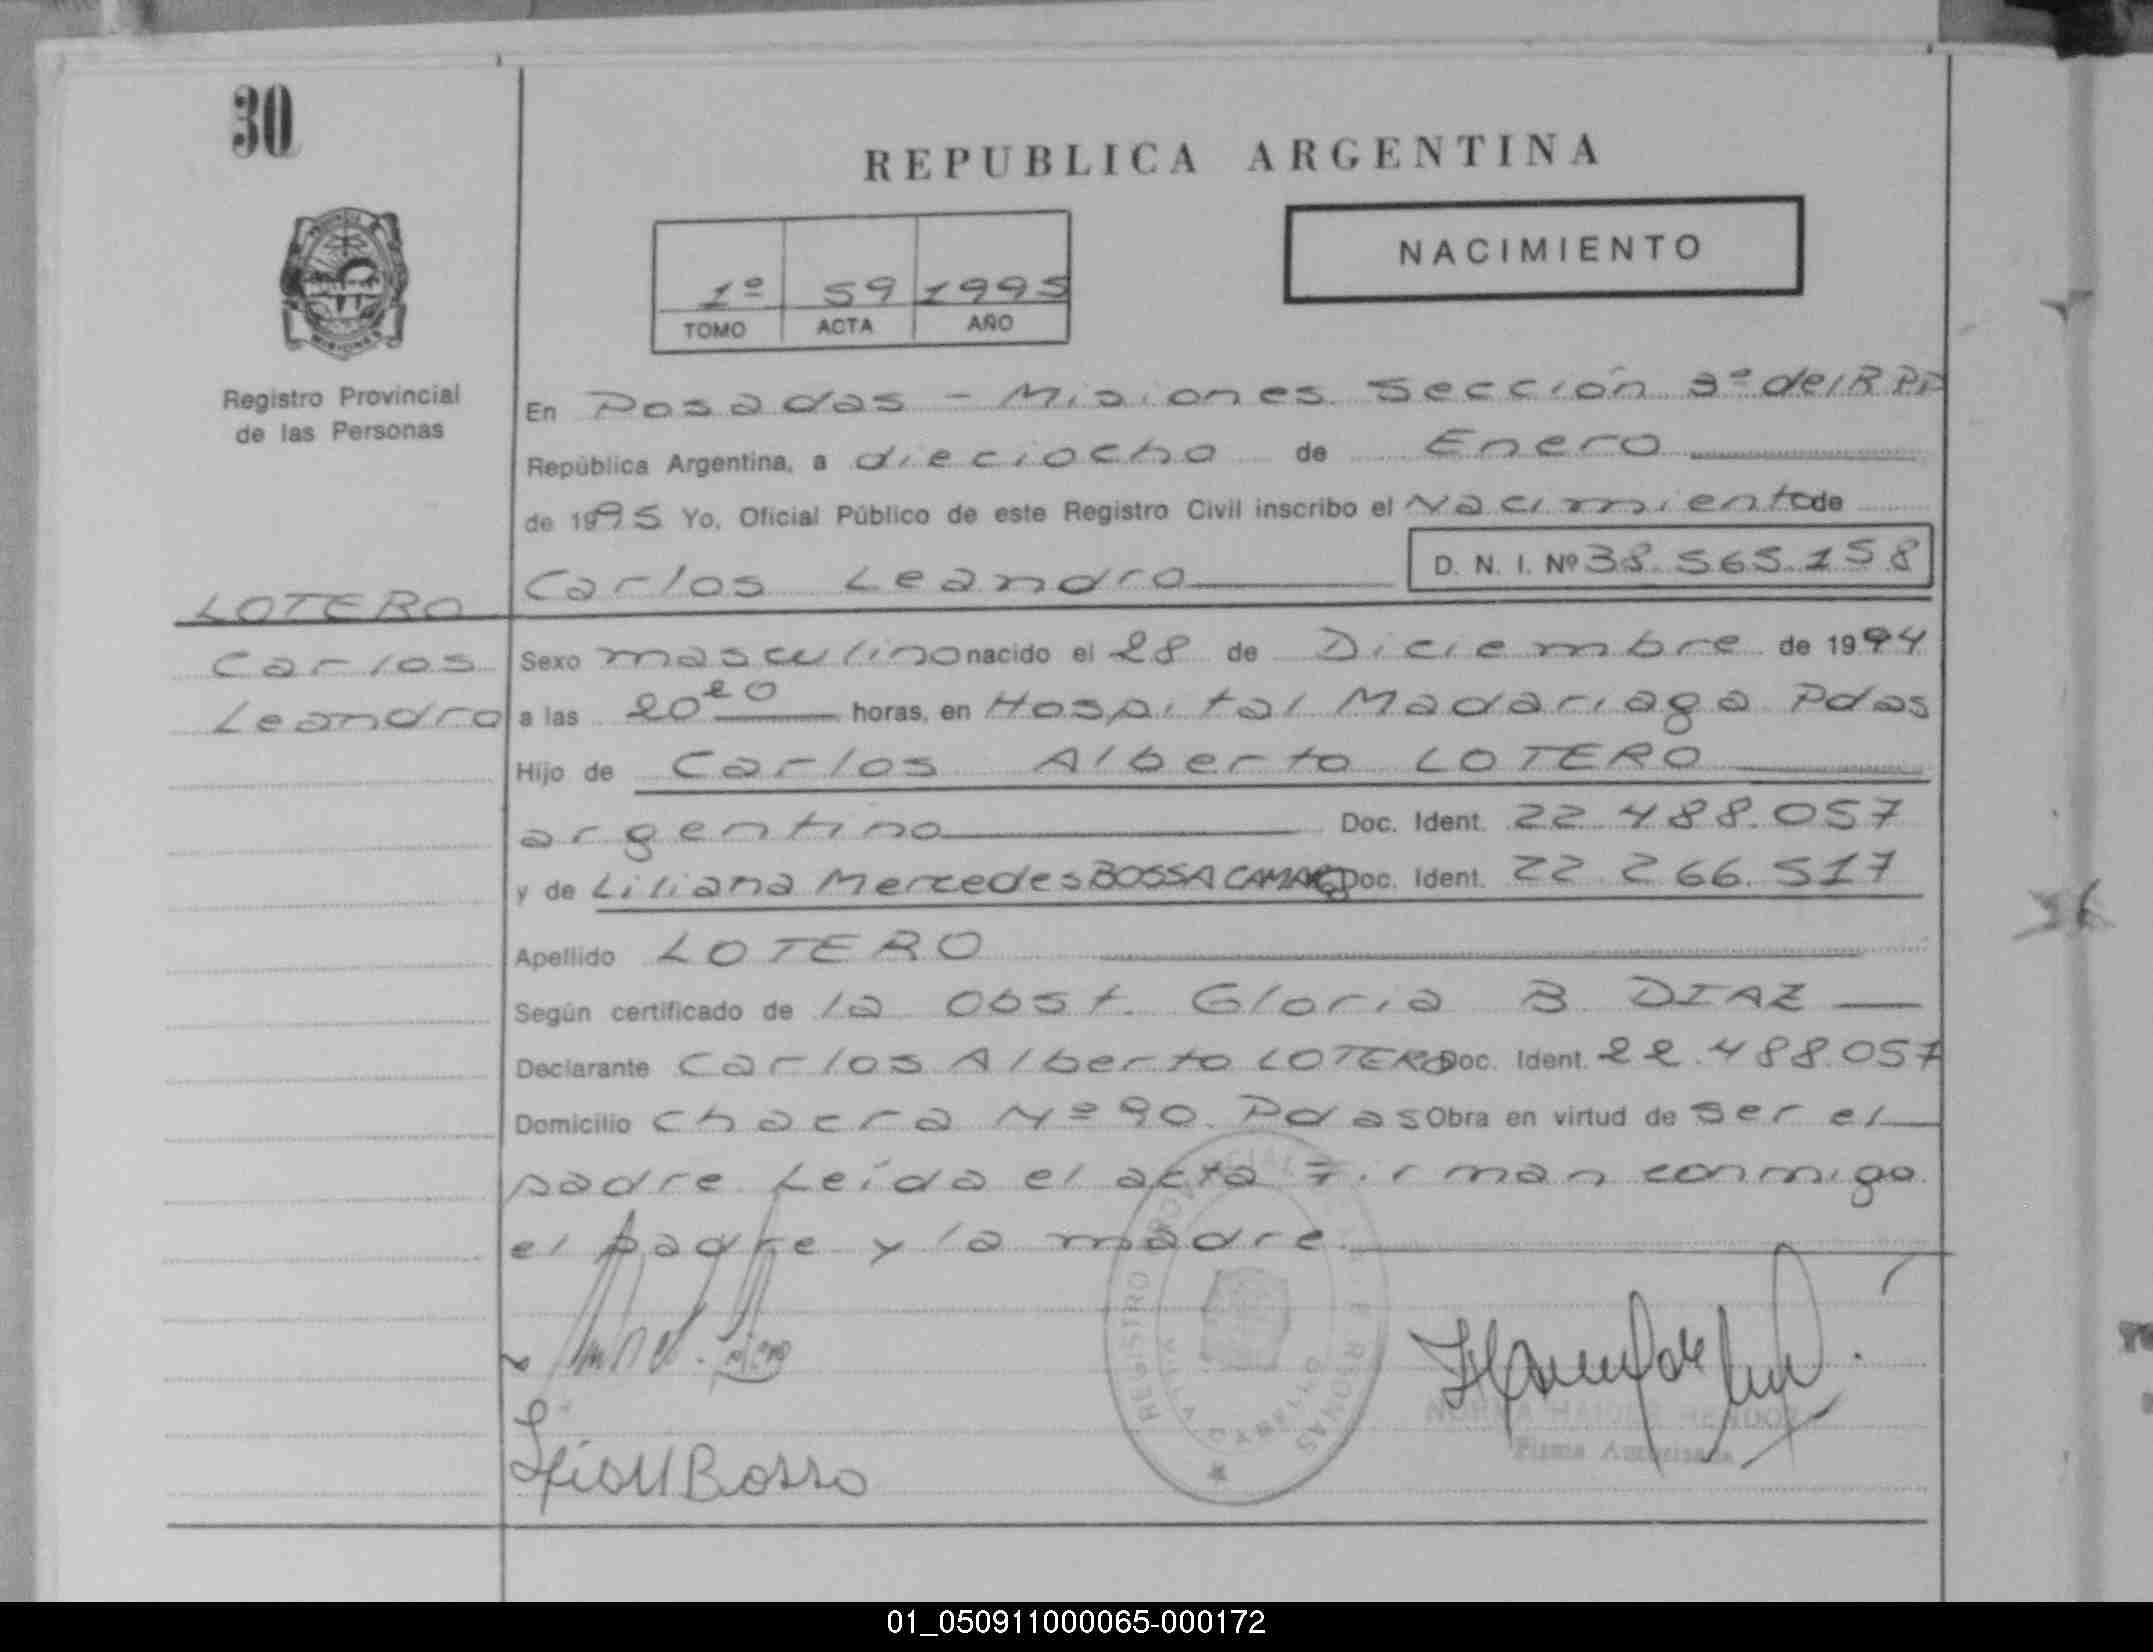 30
REPUBLICA ARGENTINA
NACIMIENTO
1º 59 1995
TOMO ACTA AÑO
Registro Provincial
de las Personas
En Posadas - Misiones Sección 3ª del R.P.P
República Argentina, a dieciocho de Enero
de 1995 Yo, Oficial Público de este Registro Civil inscribo el Nacimiento de
Carlos Leandro D. N. I. Nº 38.565.158
LOTERO
Carlos
Leandro
Sexo masculino nacido el 28 de Diciembre de 1994
a las 20 20 horas, en Hospital Madariaga Pdas
Hijo de Carlos Alberto LOTERO
argentino Doc. Ident. 22.488.057
y de Liliana Mercedes BOSSA Doc. Ident. 22.266.517
Apellido LOTERO
Según certificado de la Obst. Gloria B. DIAZ
Declarante Carlos Alberto LOTERO Doc. Ident. 22.488.057
Domicilio Chacra Nº 90. Pdas Obra en virtud de ser el
padre Leída el acta Firman conmigo
el padre y la madre.
REGISTRO PERSONAS
Bossa
Firma Autorizada
01_050911000065-000172